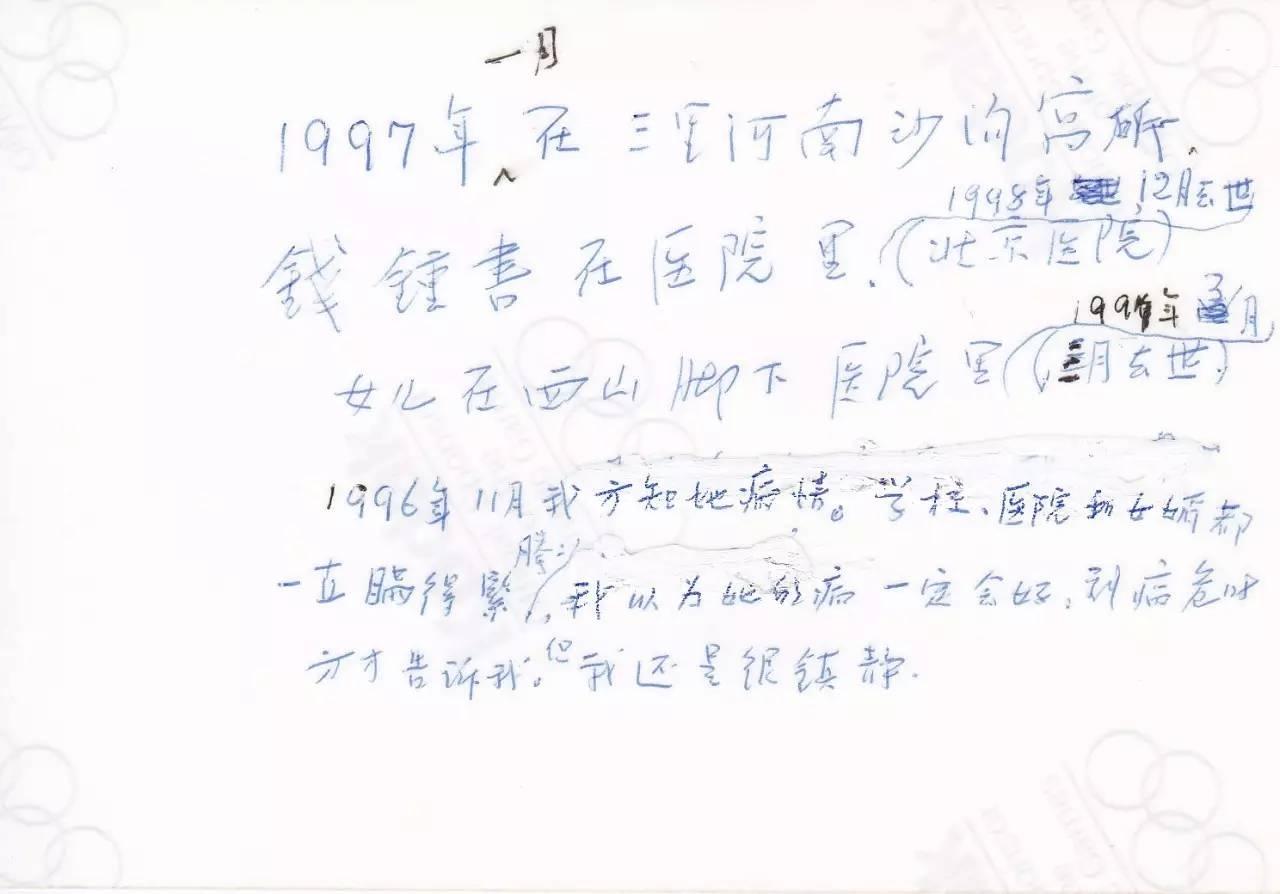 一月
1997年 在三里河南沙沟寓所、
1998年 12月去世
錢鍾書在医院里、(北京医院)
1997年 3月
女儿在西山脚下医院里(三月去世)
1996年11月我方知她病情。学校、医院和女婿都
腾
一直瞒得紧, 我以为她的病一定会好、到病危时
方才告诉我。但我还是很镇静.